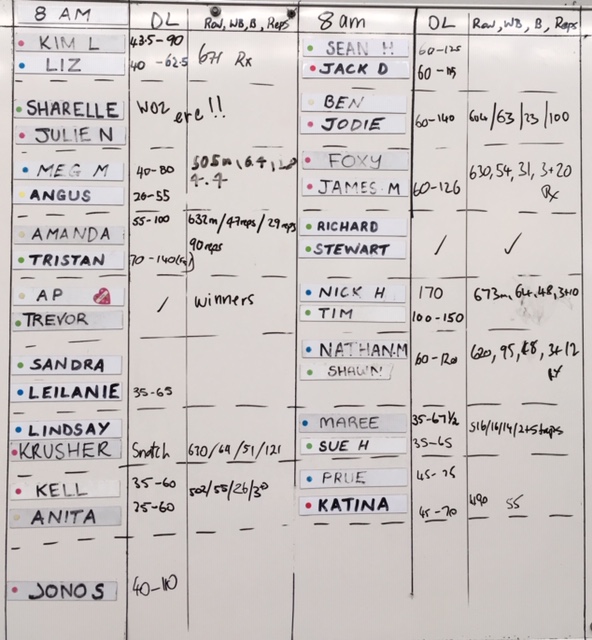 8 AM DL Row, WB, B, Reps
KIM L 43.5-90
671 Rx
LIZ 40 -62.5
SHARELLE WOZ ere!!
JULIE N
MEG M 40-80 505m, 64,
ANGUS 20-55
AMANDA 55-100 632m/47reps/29reps
90reps
TRISTAN 70-140
AP / winners
TREVOR
SANDRA
LEILANIE 35-65
LINDSAY
KRUSHER Snatch 630/64/51/121
KELL 35-60 502/55/26/30
ANITA 25-60
JONO S 40-110
8am DL Row, WB, B, Reps
SEAN H 60-125
JACK D 60-115
BEN
JODIE 60-140 604/63/23/100
FOXY 630, 54, 31, 3+20
JAMES M 60-126 Rx
RICHARD
STEWART / ✓
NICK H 170 673m, 64, 48, 3+10
TIM 100-150
NATHAN.M 60-120 620, 95, 48, 3+12
SHAWN
MAREE 35-67½ 516/16/14/2+5reps
SUE H 35-65
PRUE 45-75
KATINA 45-70 490 55